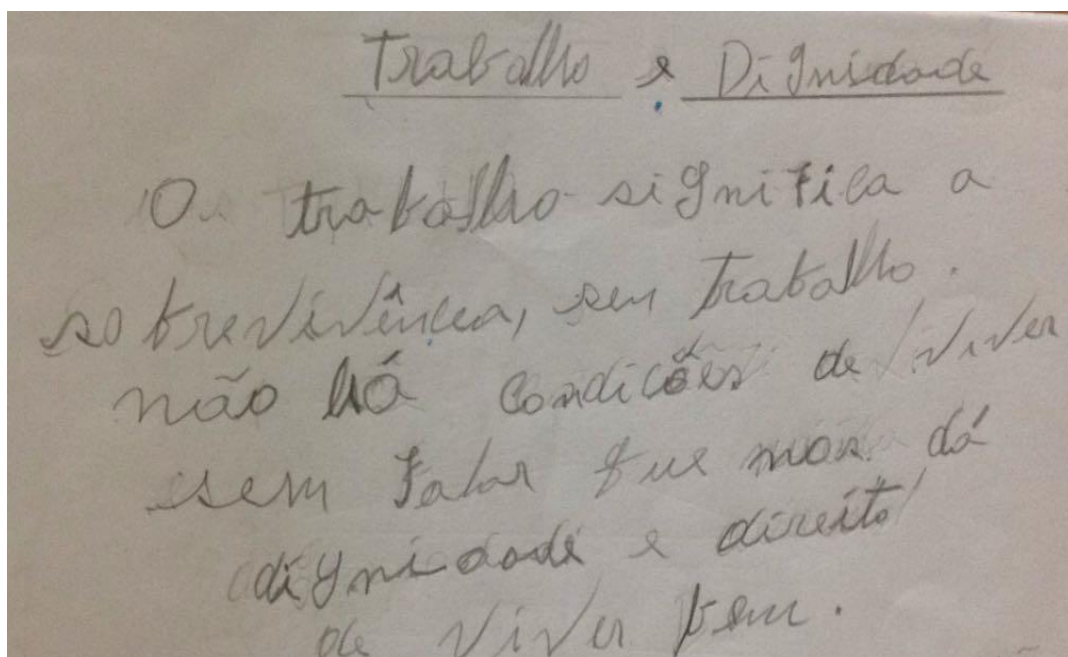 Trabalho e Dignidade
O trabalho significa a
sobrevivência, sem trabalho.
não há condicões de viver
sem falar que nos dá
dignidade e direito
de viver bem.